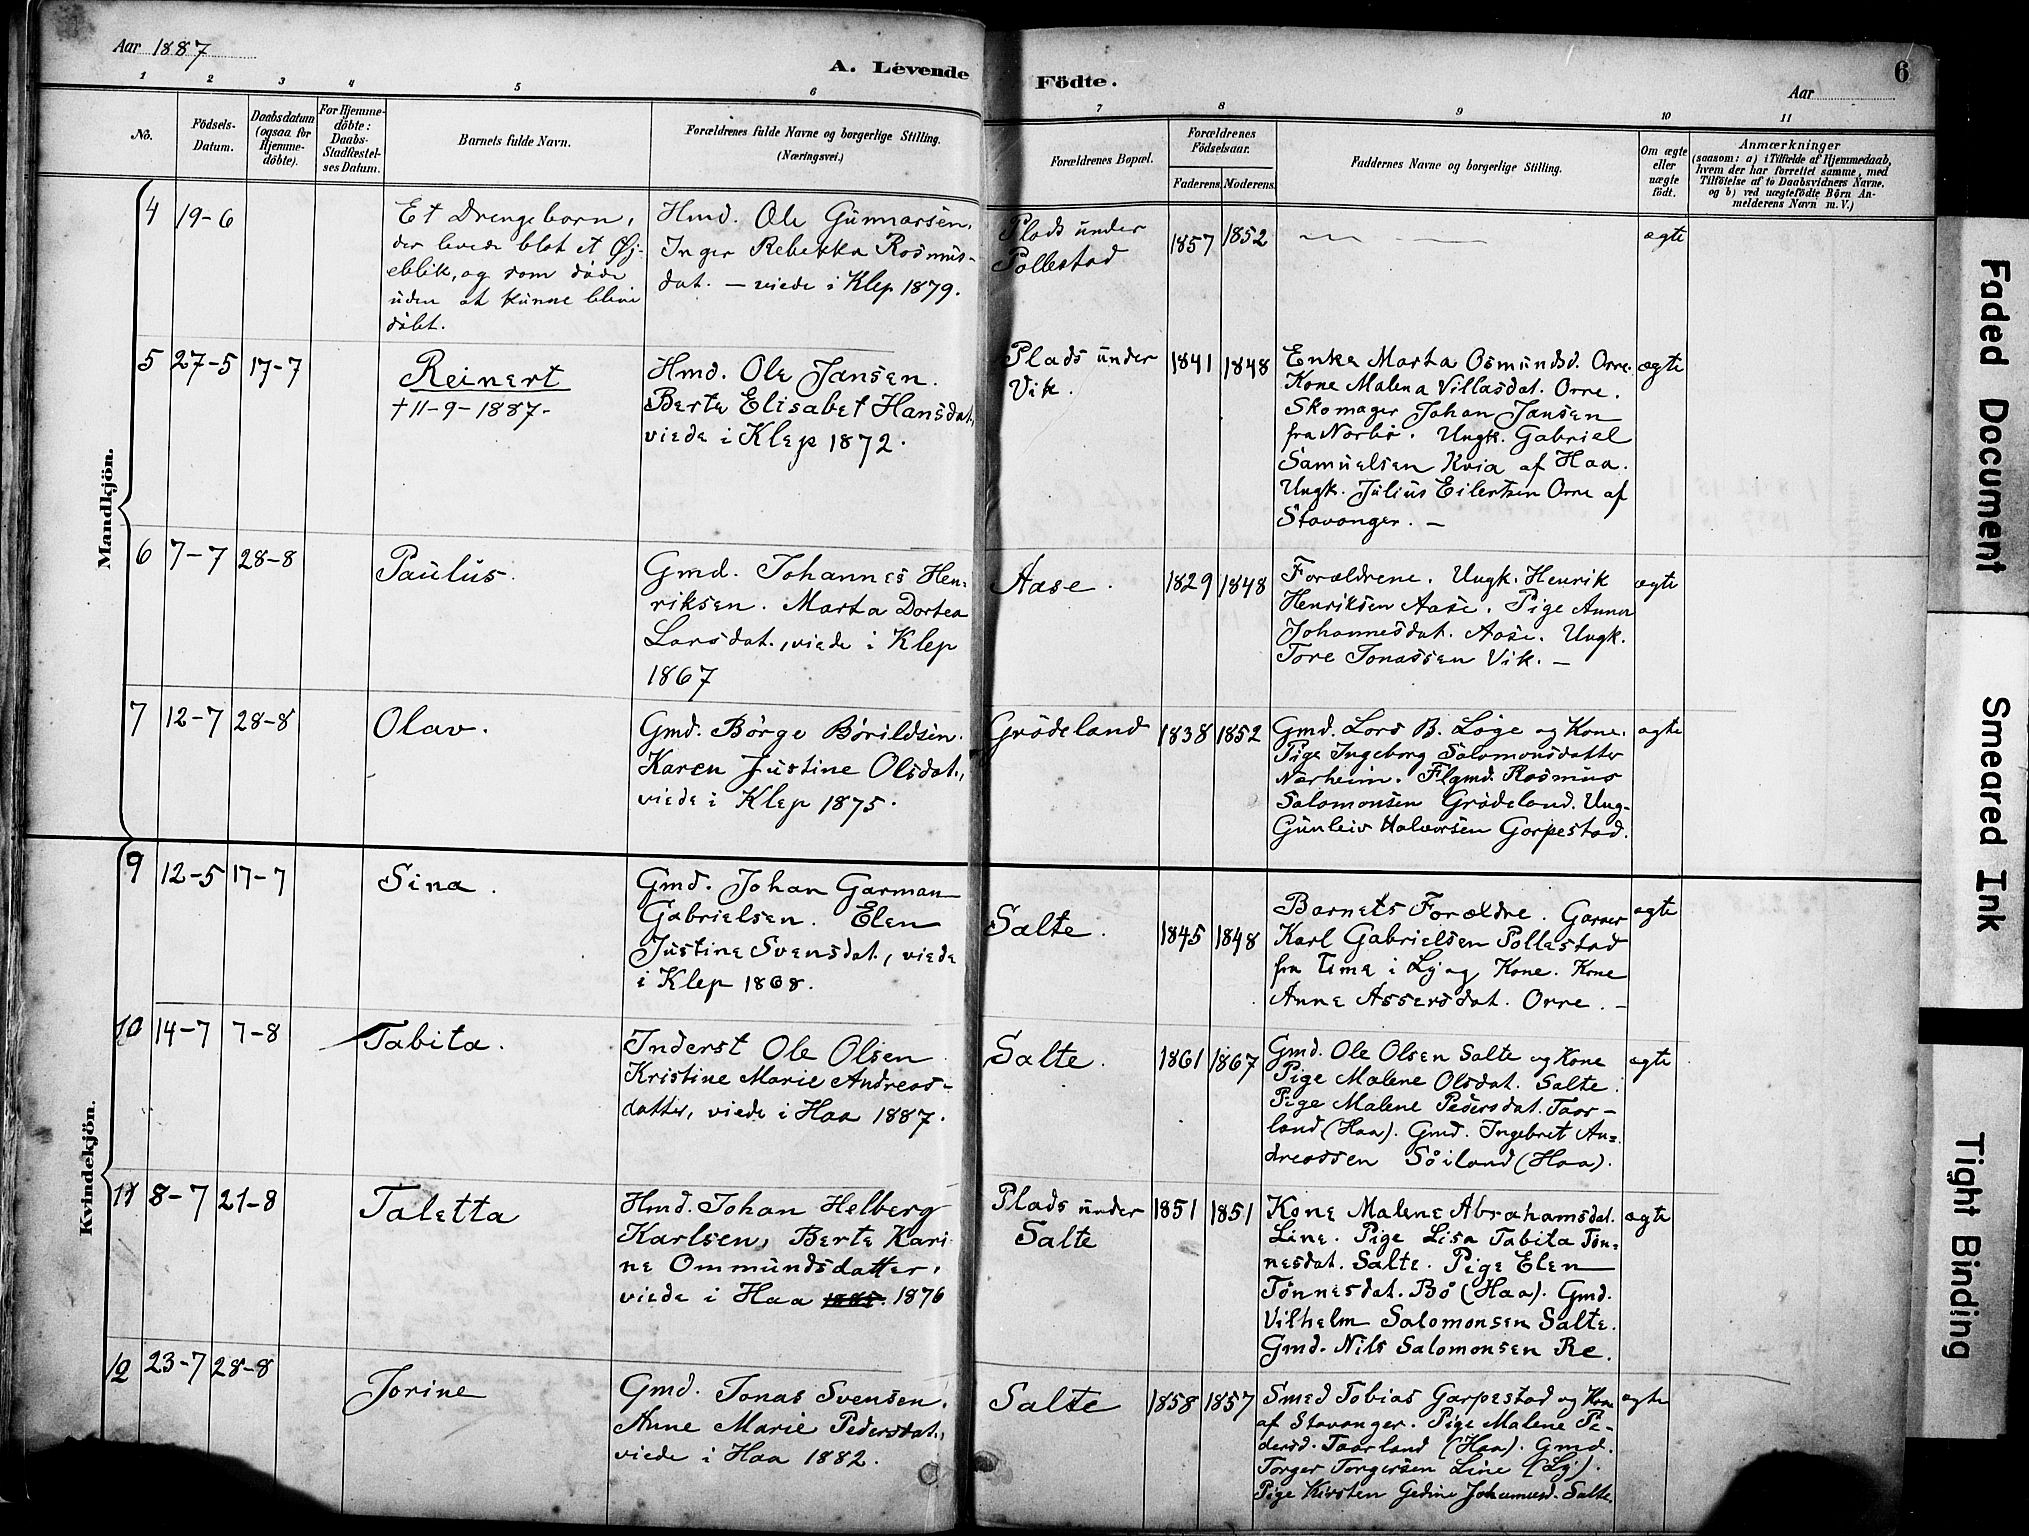 Aar 1887
A. Levende Födte.
Aar
6
1 2 3 4 5 6 7 8 9 10 11
No.
Födsels-Datum.
Daabsdatum (ogsaa for Hjemme-döbte).
For Hjemme-döbte: Daabs-Stadfæstel-ses Datum.
Barnets fulde Navn.
Forældrenes fulde Navne og borgerlige Stilling.
(Næringsvei.)
Forældrenes Bopæl.
Forældrenes Födselsaar.
Faderens. Moderens.
Faddernes Navne og borgerlige Stilling.
Om ægte eller uægte født.
Anmærkninger
(saasom: a) i Tilfælde af Hjemmedaab,
hvem der har forrettet samme, med
Tilföielse af to Daabsvidners Navne.
og b) ved uægtefödte Börn An-
melderens Navn m. V.)
Mandkjön.
4 19-6
Et Drengebarn,
der levede blot et Øj-
eblik, og som døde
uden at kunne blive
døbt.
Hmd. Ole Gunnarsen,
Inger Rebekka Rasmus-
dat. — viede i Klep 1879.
Plads under
Pollestad
1857 1852
ægte
5 27-5 17-7
Reinert
† 11-9-1887-
Hmd. Ole Jansen.
Berte Elisabet Hansdat.,
viede i Klep 1872.
Plads under
Vik.
1841 1848
Enke Marta Osmundsd. Orre.
Kone Malena Villasdat. Orre.
Skomager Johan Jansen
fra Nærbø. Ungk. Gabriel
Samuelsen Kvia af Haa.
Ungk. Julius Eilertsen Orre af
Stavanger. —
ægte
6 7-7 28-8
Paulus.
Gmd. Johannes Hen-
riksen. Marta Dortea
Larsdat., viede i Klep
1867
Aase.
1829 1848
Forældrene. Ungk. Henrik
Henriksen Aase. Pige Anna
Johannesdat. Aase. Ungk.
Tore Jonassen Vik. —
ægte
7 12-7 28-8
Olav.
Gmd. Børge Børildsen.
Karen Justine Olsdat.,
viede i Klep 1875.
Grødeland
1838 1852
Gmd. Lars B. Løge og Kone.
Pige Ingeborg Salomonsdatter
Nærheim. Flgmd. Rasmus
Salomonsen Grødeland. Ung-
Gunleiv Halvorsen Garpestad.
ægte
Kvindekjön.
9 12-5 17-7
Sina.
Gmd. Johan Garman
Gabrielsen. Elen
Justine Svensdat., viede
i Klep 1868.
Salte.
1845 1848
Barnets Forældre. Garver
Karl Gabrielsen Pollestad
fra Time i Lj og Kone. Kone
Anne Assersdat. Orre. —
ægte
10 14-7 7-8
Tabita.
Inderst Ole Olsen
Kristine Marie Andreas-
datter, viede i Haa 1887.
Salte.
1861 1867
Gmd. Ole Olsen Salte og Kone
Pige Malene Olsdat. Salte.
Pige Malene Pedersdat. Taar-
land (Haa). Gmd. Ingebret An-
dreassen Søiland (Haa).
ægte
11 8-7 21-8
Taletta
Hmd. Johan Helberg
Karlsen, Berte Kari-
ne Ommundsdatter,
viede i Haa 1876
Plads under
Salte
1851 1851
Kone Malene Abrahamsdat.
Line. Pige Lisa Tabita Tøn-
nesdat. Salte. Pige Elen
Tønnesdat. Bø (Haa). Gmd.
Vilhelm Salomonsen Salte.
Gmd. Nils Salomonsen Re.
ægte
12 23-7 28-8
Jorine
Gmd. Jonas Svensen,
Anne Marie Pedersdat.,
viede i Haa 1882.
Salte
1858 1857
Smed Tobias Garpestad og Kone
af Stavanger. Pige Malene Pe-
dersd. Taarland (Haa). Gmd.
Torger Torgersen Line (Lj).
Pige Kirsten Gedine Johannesd. Salte.
ægte
Faded Document
Smeared Ink
Tight Binding